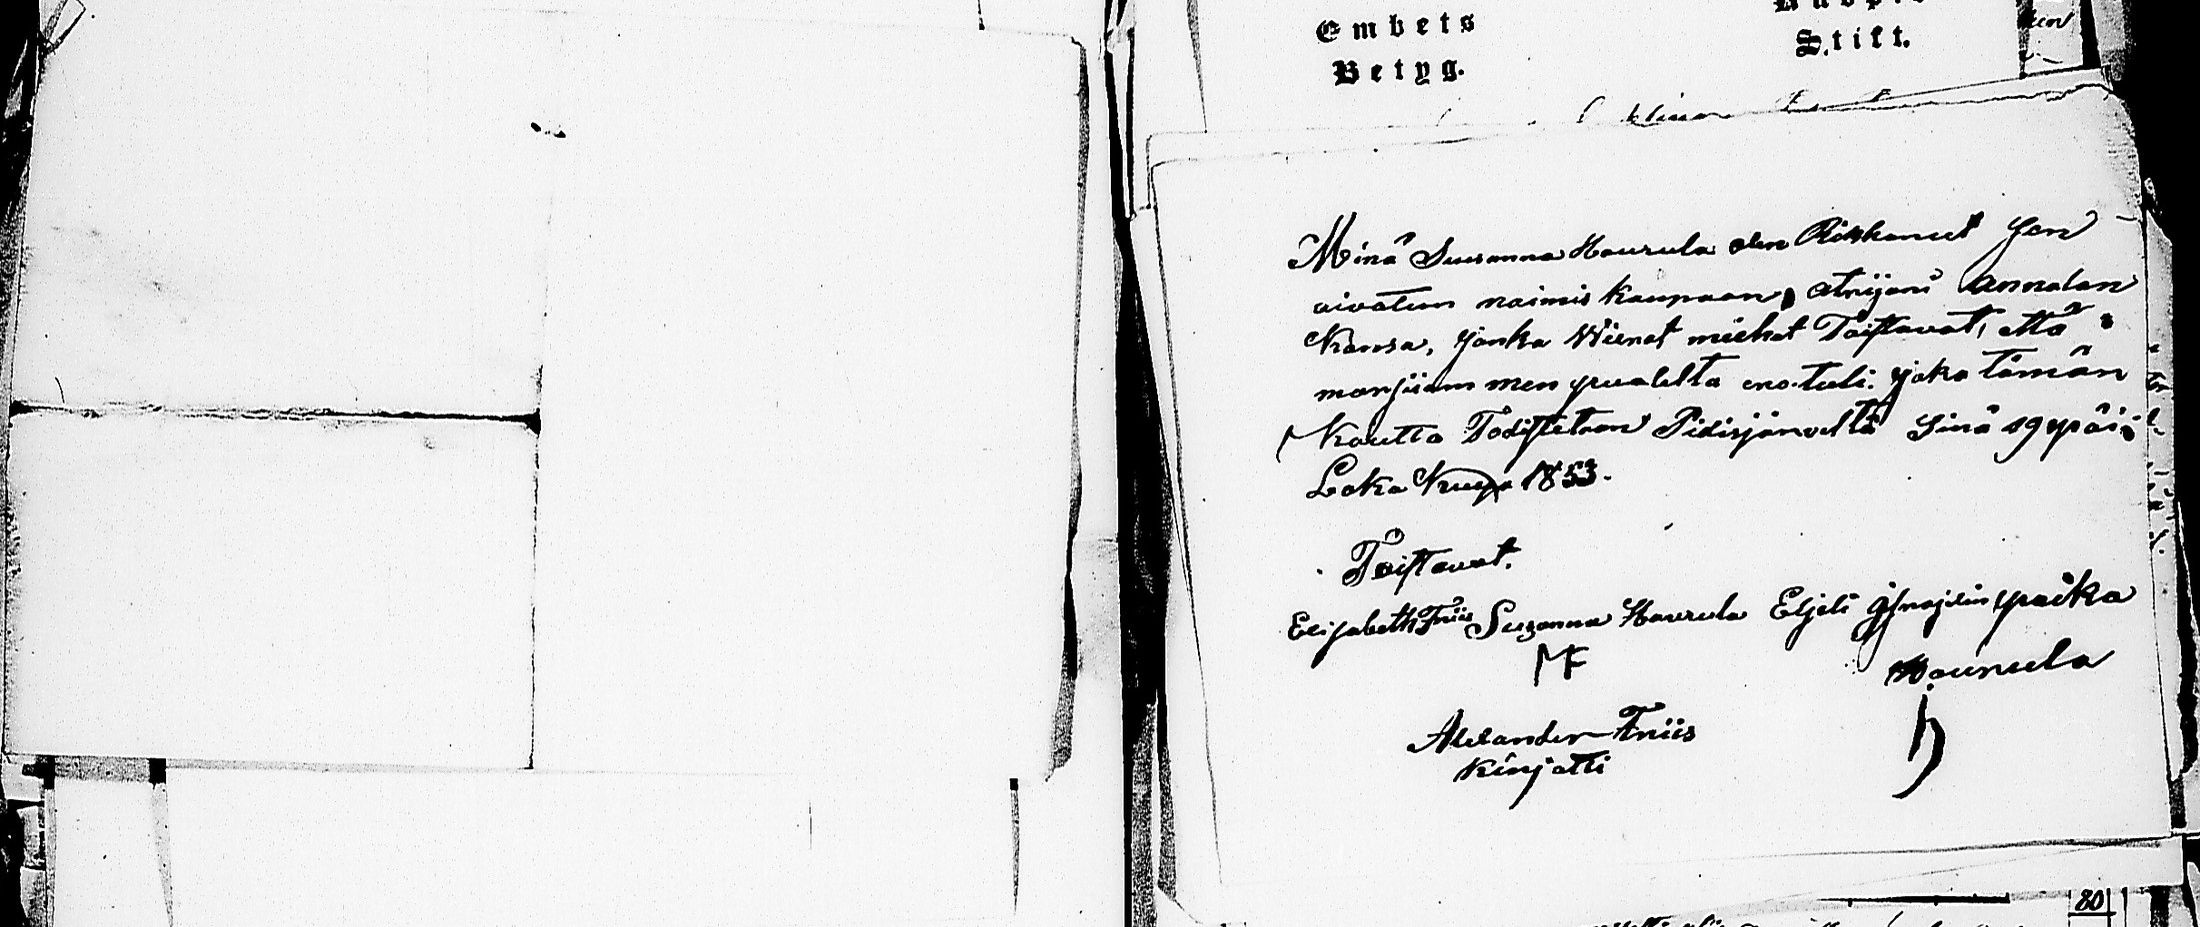 Embets
Betyg.
Stift.
Minä Susanna Haurula olen Rikkanut Jen
aivotun naimis kaupaan, Antrijani Annalan
Kansa, Jonka Wierat miehet Toistavat, että
morsiiam men puolelta ero tuli. joka tämän
Kautta Todistetaan Pidisjärveltä Sinä 19 päi
Loka Kuuga 1853.
Toistavat.
Elisabeth Friis Susanna Haurula Eljeli paika
MF Haurula
Alexander Friis
kirjotti
80